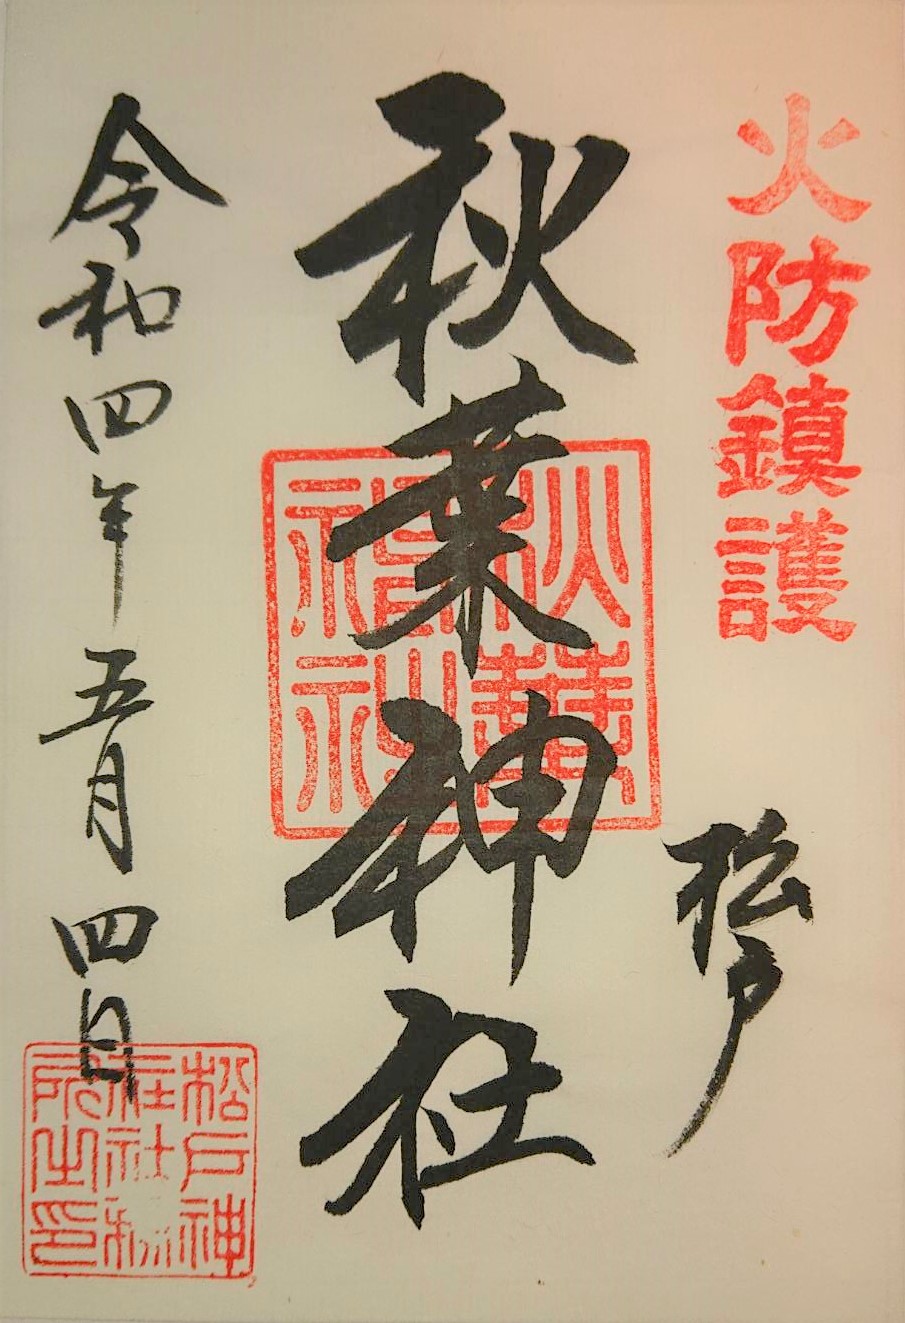 火防鎮護
松戸
秋葉神社
秋葉神社
令和四年五月四日
松戸神
社社務
所之印